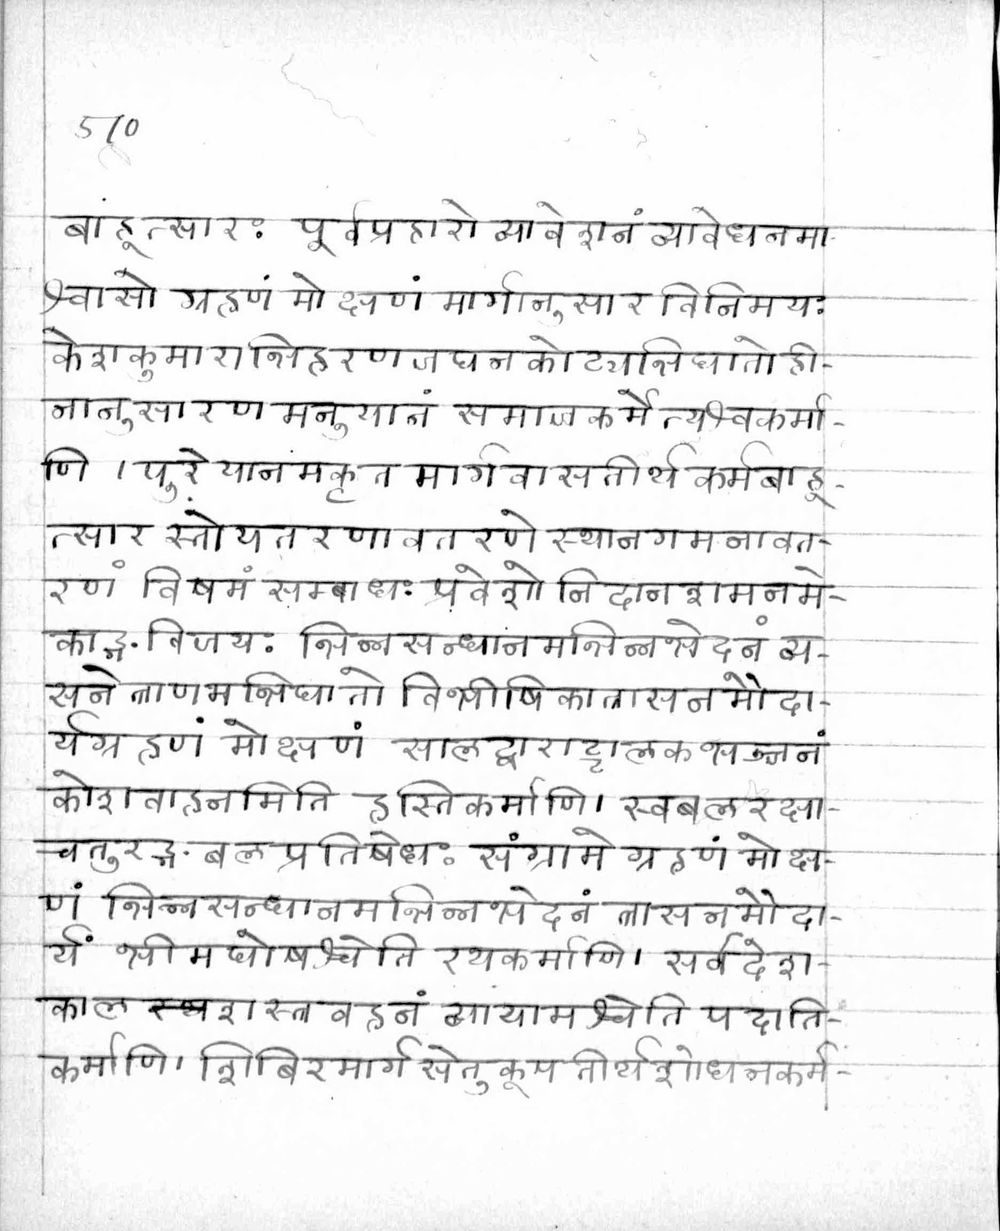 570
बाहूत्सारः पूर्वप्रहारो व्यावेशनं व्यावेधनमा-
श्वासो ग्रहणं मोक्षणं मार्गानुसारविनिमयः
केशकुमाराभिहरणजघनकोट्यभिघातो ही-
नानुसारणमनुयानं समाजकर्मेत्यश्वकर्मा-
णि । पुरे यानमकृतमार्गवासतीर्थकर्मबाहू-
त्सारस्तोयतरणावतरणे स्थानगमनावत-
रणं विषमं सम्बाधः प्रवेशो निदानशमनमे-
काङ्गविजयः भिन्नसन्धानमभिन्नभेदनं व्य-
सने त्राणमभिघातो विभीषिकात्रासनमौदा-
र्यग्रहणं मोक्षणं सालद्वाराट्टालकभञ्जनं
कोशवाहनमिति हस्तिकर्माणि। स्वबलरक्षा-
चतुरङ्गबलप्रतिषेधः संग्रामे ग्रहणं मोक्ष-
णं भिन्नसन्धानमभिन्नभेदनं त्रासनमौदा-
र्यं भीमघोषश्चेति रथकर्माणि। सर्वदेश-
काल शस्त्रवहनं व्यायामश्चेति पदाति-
कर्माणि। शिबिरमार्गसेतुकूपतीर्थशोधनकर्म-